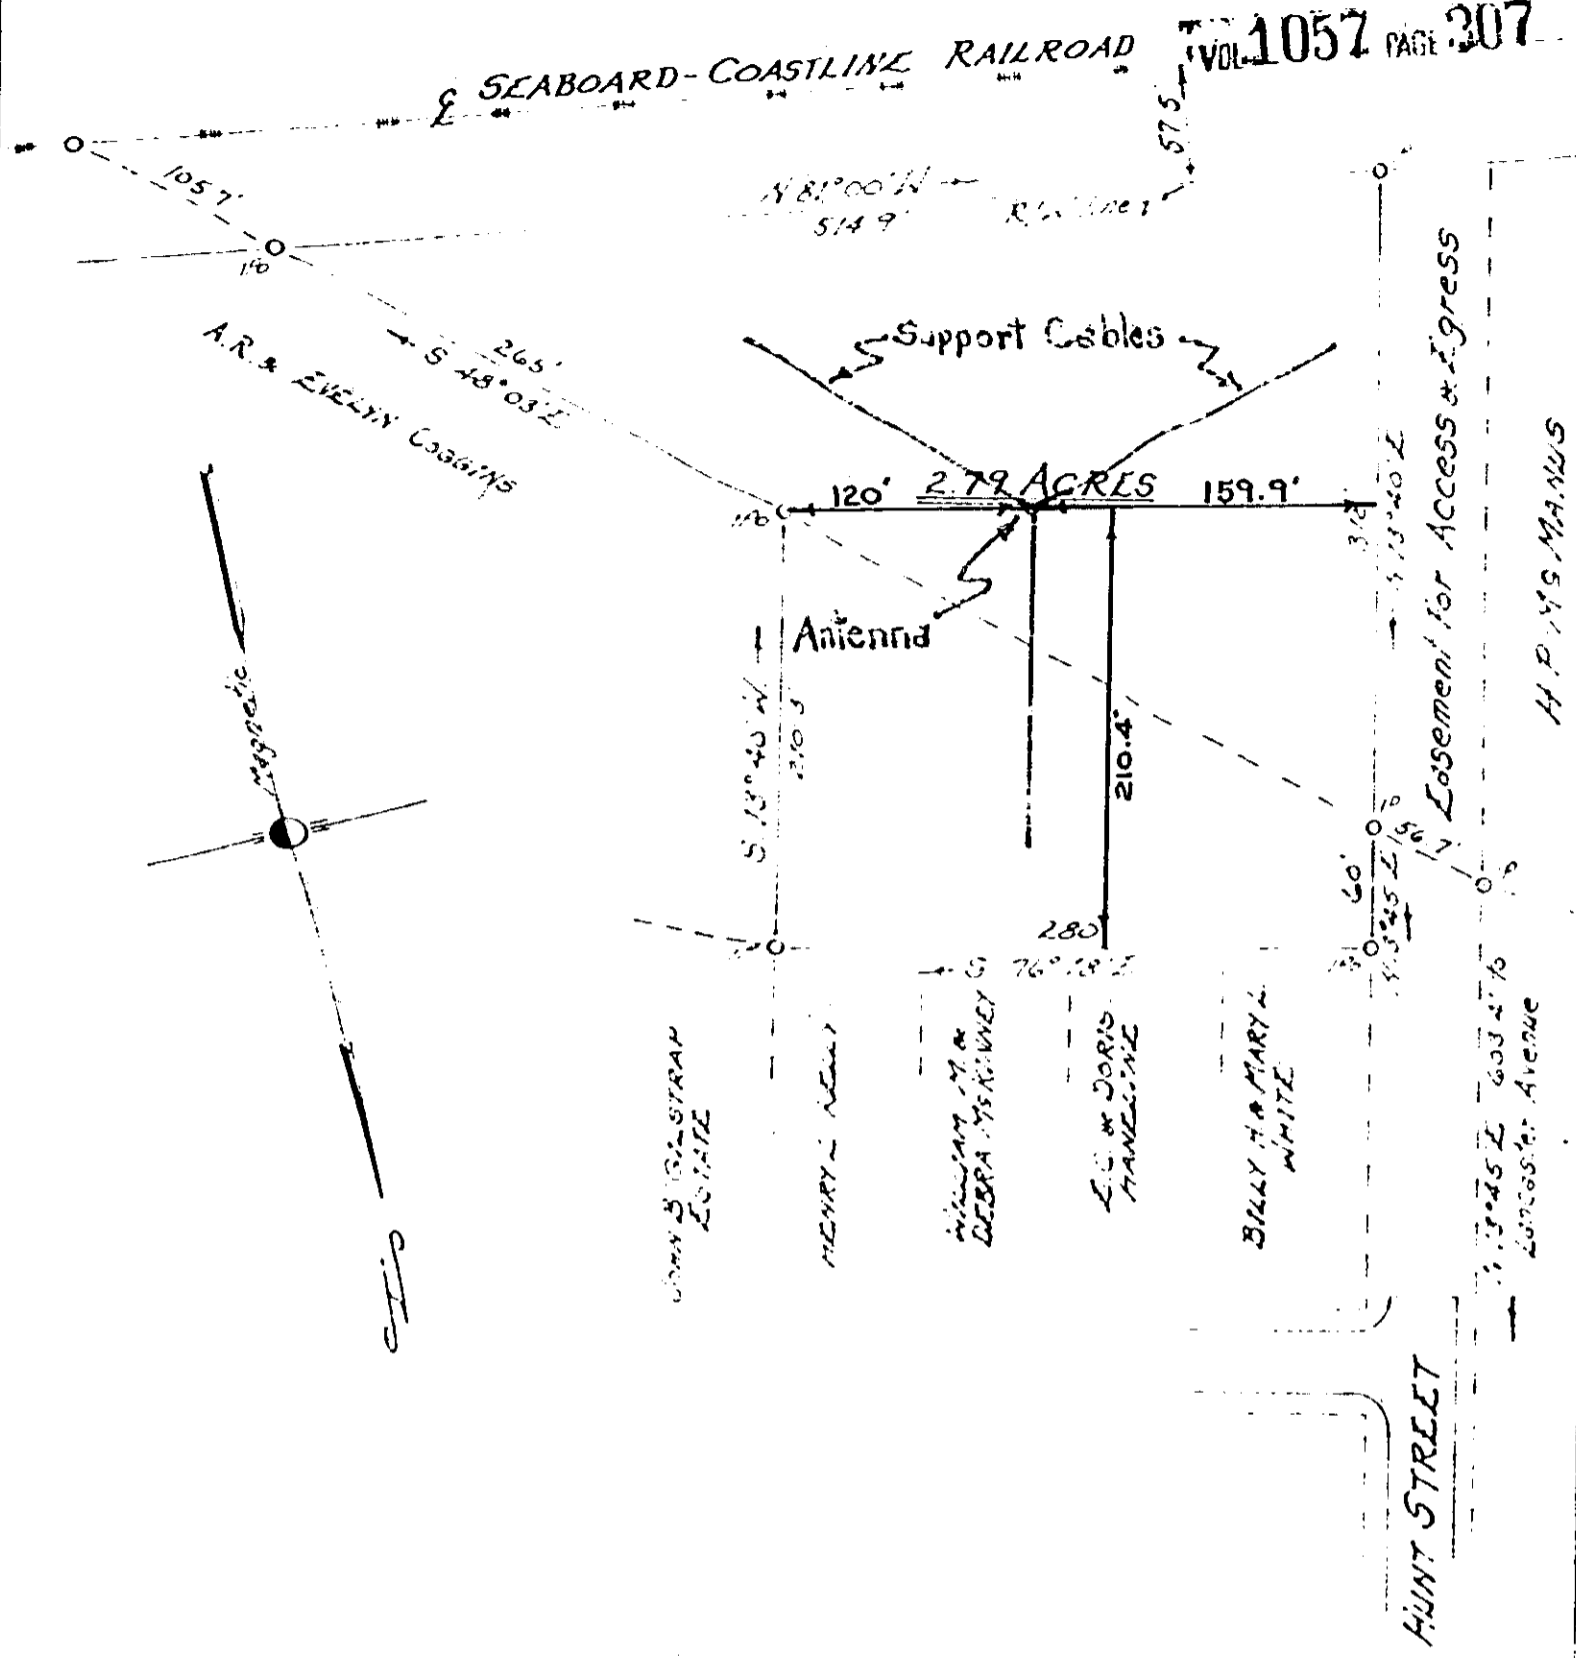 VOL 1057 PAGE 307
℄ SEABOARD-COASTLINE RAILROAD
57.5
105.7'
N 81°00'W
514.9'
R/W line
265'
S 48°03'E
A.R. & EVELYN COGGINS
Support Cables
120'
2.79 ACRES
159.9'
Antenna
Magnetic
S 13°40'W
210.4'
Easement for Access & Egress
156.7'
60'
280'
JOHN B GILSTRAP
ESTATE
HENRY L
WILLIAM M. &
DEBRA McKINNEY
E.C. & DORIS
HANELINE
BILLY H & MARY L
WHITE
Lancaster Avenue
HUNT STREET